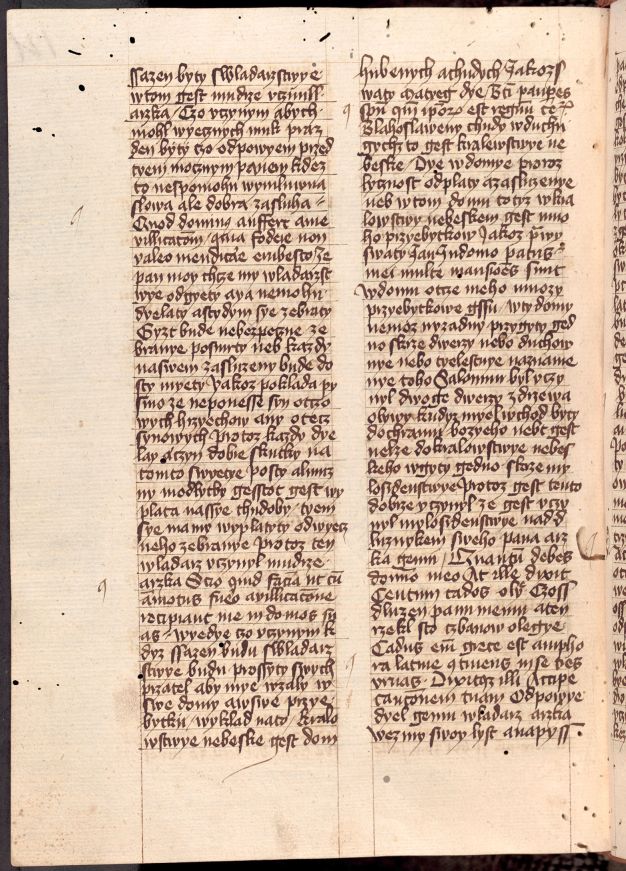 ssazen byty s wladarzstwye
w tom gest mudrze vczinil
arzka Czo vczynym abych
mohl wyecznych muk praz
den byty czo odpowyem przed
tyem mocznym panem kdez
to nespomohu wymluwna
slowa ale dobra zasluha
Quod dominus auffert a me
villicacionem qua fodere non
valeo mendicare erubesco ze
pan moy chcze my wladarzst
wye odgyety a ya nemohu
dyelaty a stydym sye zebraty
Gyzt bude nebezpeczne ze
branye po smrty neb kazdy
nasswem zaslyzeny bude do
sty myety yakoz poklada py
smo ze neponesse syn otczo
wych hrzyechow any otecz
synowych protoz kazdy dye
lay a czyn dobre skutky na
tomto swyetye posty almuz
ny modlytby gesstoc gest wy
plata nassye chudoby tyem
sye mamy wyplatyty od wyecz
neho zebranye protoz ten
wladarz vczynyl mudrze
arzka Scio quid faciam ut cum
amotus fuero a villicacione
recipiant me in domos su
as wyedye czo vczynym k
dyz ssazen budu s wladarz
stwye budu prossyty swych
przatel aby mye wzaly w
swe domy a w swe przye
bytky wyklad na to kralo
wstwye nebeske gest dom
hubenych a chudych Jakoz s
waty Matyeg dye Beati pauperes
spiritu quoniam ipsorum est regnum ce
Blahoslaweny chudy w duchu
gychz to gest kralewstwye ne
beske Dye w domye proroz
lycznost odplaty a zaslyzenye
neb w tom domu totyz w kra
lowstwy nebeskem gest mno
ho przyebytkow Jakoz prawy
swaty Jan In domo patris
mei multe mansiones sunt
W domu otcze meho mnozy
przyebytkowe gssu w ty domy
nemoz wyzadny przygyty ged
no skrze dwerzy nebo duchow
nye nebo tyelestnye naznamie
nye toho Salomun byl vczy
nyl dwoge dwerzy z drzewa
olywy kudyz myel wchod byty
do chramu bozyeho nebt gest
nelze do kralowstwye nebes
keho wgyty gedno skrze my
losrdenstwye protoz gest tento
dobrze vczynyl ze gest vczy
nyl mylosrdenstwye nad d
luznykem sweho pana arz
ka gemu Quantum debes
domino meo At ille dixit
Centum cados olei Czoss
dluzen panu memu a ten
rzekl sto czbanow olegye
Cadus enim grece est ampho
ra latine continens in se tres
vrnas Dixitque illi Accipe
caucionem tuam Odpowye
dyel gemu wladarz arzka
wezmy swoy lyst a napyss